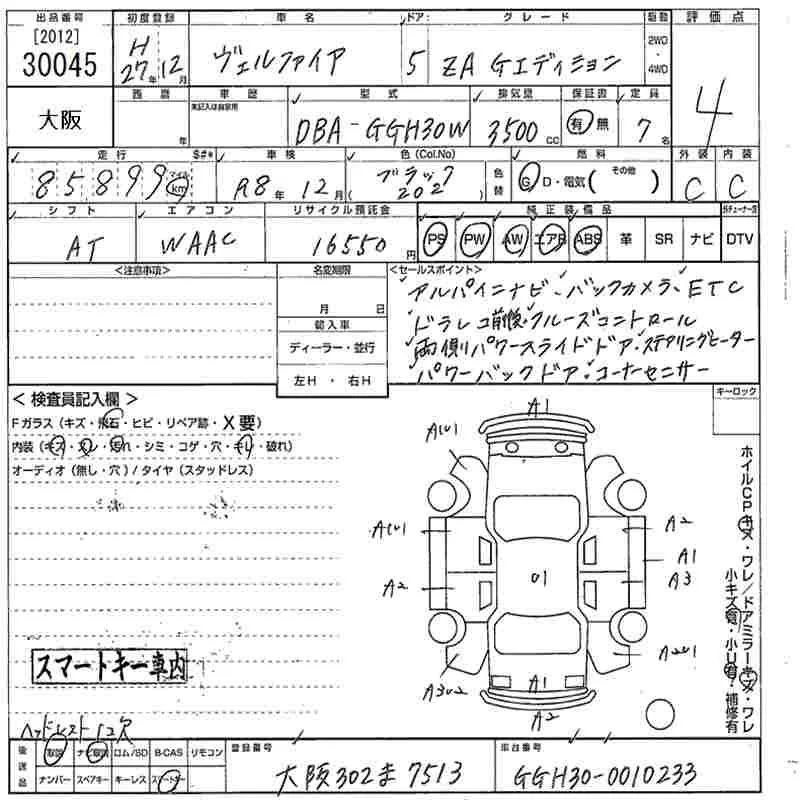 出品番号 初度登録 車名 ドア グレード 駆動 評価点
[2012] 30045 H27年12月 ヴェルファイア 5 ZA Gエディション 2WD・4WD 4
大阪 西暦 年 車歴 未記入は自家用 型式 DBA-GGH30W 排気量 3500cc 保証書 有 無 定員 7名
走行 $#* 車検 色(Col.No) 色替 燃料 外装 内装
85899 マイル km R8年12月 (ブラック 202) G・D・電気( その他 ) C C
シフト エアコン リサイクル預託金 純正装備品
AT WAAC 16550円 PS PW AW エアB ABS 革 SR ナビ DTV
<注意事項> 名変期限 <セールスポイント>
月 日
アルパインナビ・バックカメラ・ETC
輸入車
ドラレコ前後・クルーズコントロール
ディーラー・並行
両側パワースライドドア・ステアリングヒーター
左H・右H
パワーバックドア・コーナーセンサー
<検査員記入欄> キーロック
Fガラス(キズ・飛石・ヒビ・リペア跡・X要)
内装(キズ・スレ・汚れ・シミ・コゲ・穴・キレ・破れ)
オーディオ(無し・穴)/タイヤ(スタッドレス)
A1
A1U1
A1U1 A2
A1
A2 A3
01
A3U2 A1 A2U1
A2
ホイルCPキズ・ワレ/ドアミラーキズ・ワレ
小キズ有・小U有・補修有
スマートキー車内
ヘッドレスト1コ欠
後送品 取説 ナビ取説 ロム/SD B-CAS リモコン 登録番号 車台番号
ナンバー スペアキー キーレス スマートキー 大阪302ま7513 GGH30-0010233